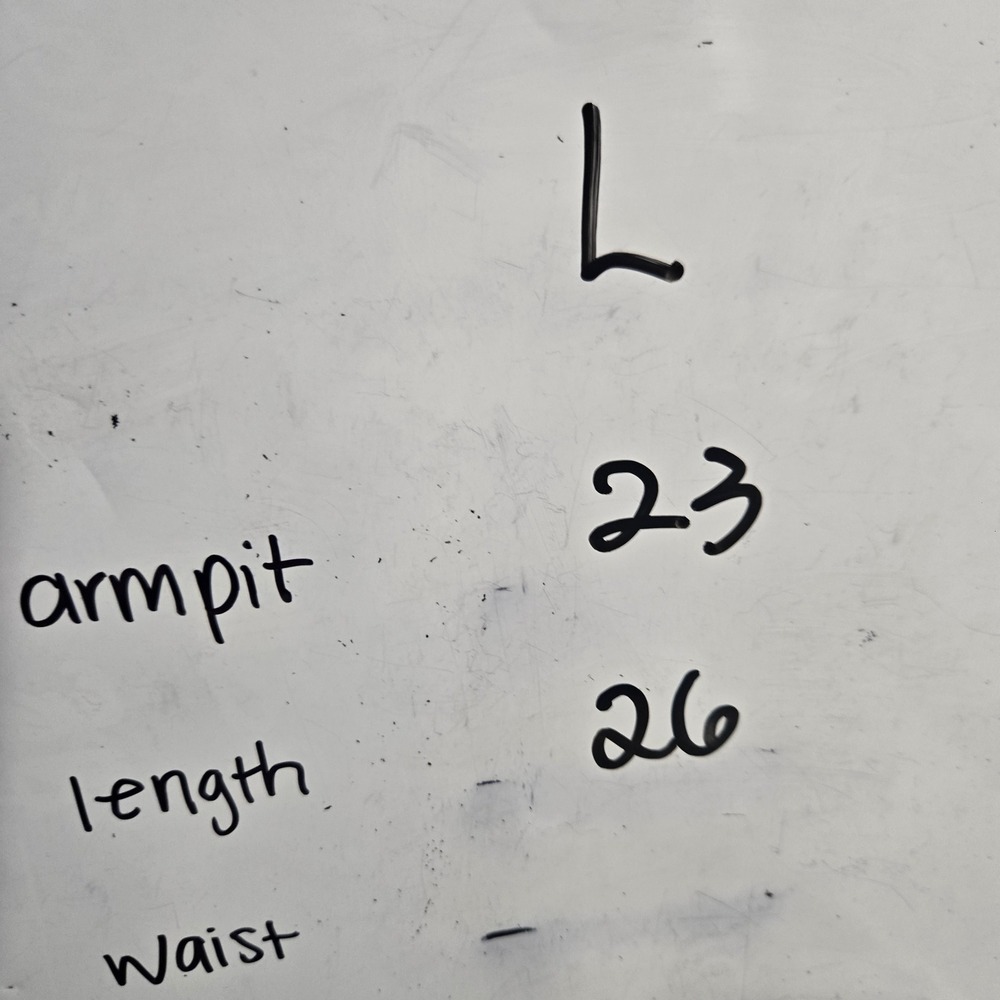 L
armpit 23
length 26
waist -